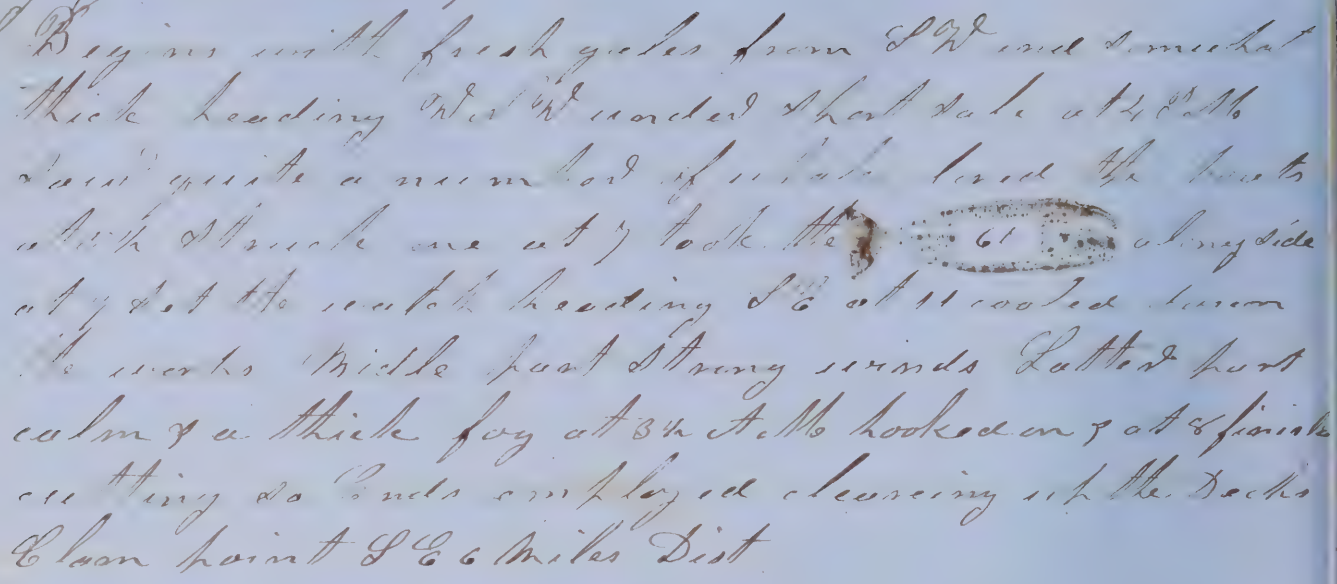 Begins with fresh gales from SW and somewhat
thick heading W by W under short sale at 4 PM
saw quite a number of whale lored the boats
at struck one at 7 took the 61 alongside
at 9 set the watch heading SE at 11 cooled down
the works Midle part Strong winds Latter part
calm & a thick fog at 3 ½ AM hooked on & at 8 finish
cutting so Ends employed cleareing up the Decks
Elam point SE 6 Miles Dist